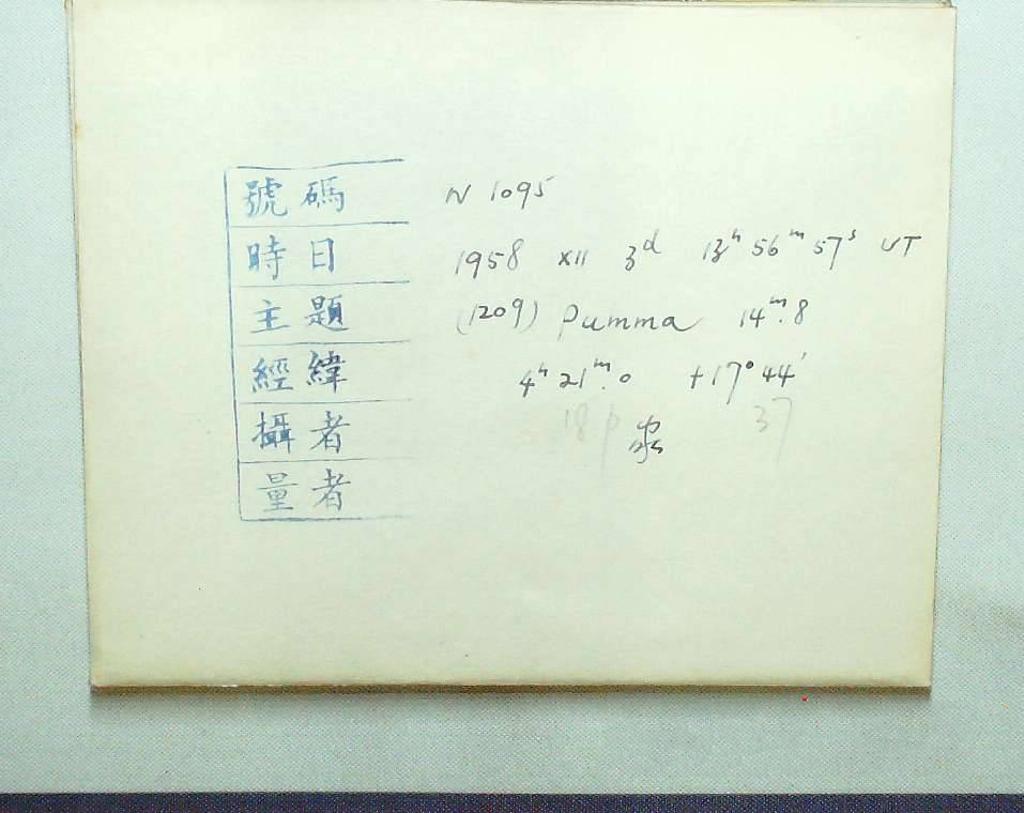 號碼 N 1095
時日 1958 XII 3d 13h 56m 57s UT
主題 (1209) Pumma 14m.8
經緯 4h 21m.0 +17° 44'
18 p 37
攝者
量者